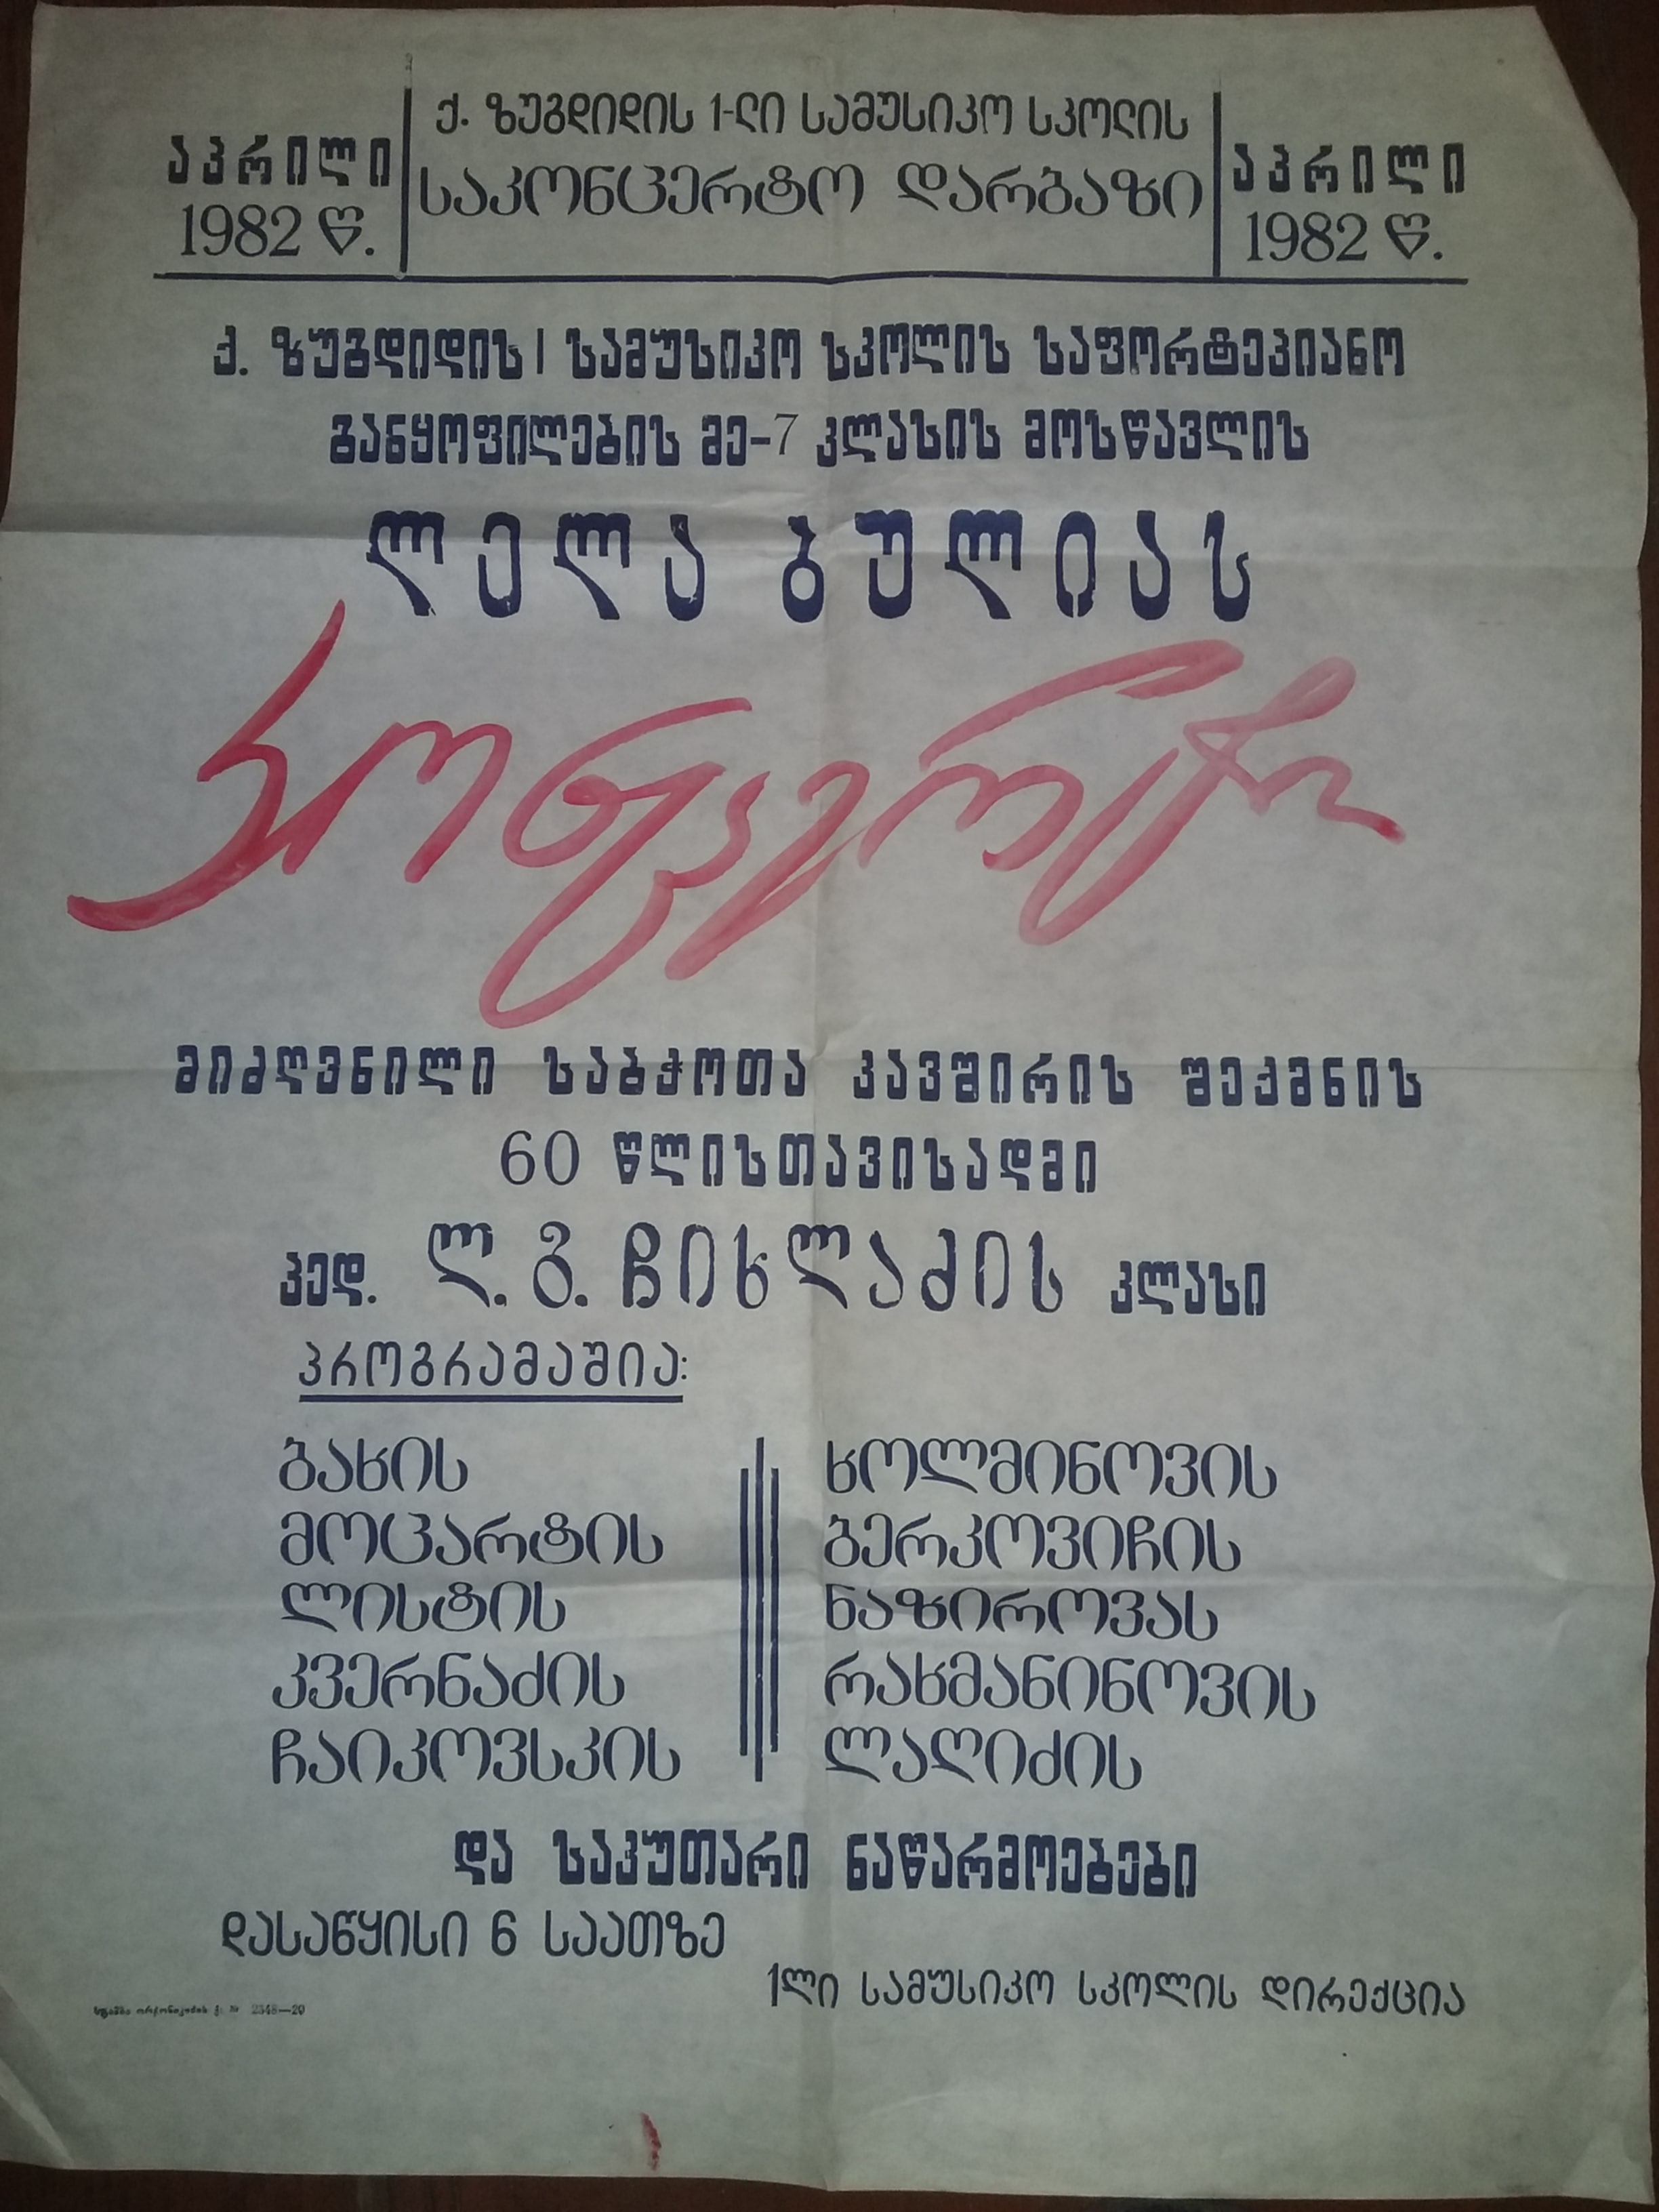 აპრილი
1982 წ.
ქ. ზუგდიდის 1-ლი სამუსიკო სკოლის
საკონცერტო დარბაზი
აპრილი
1982 წ.
ქ. ზუგდიდის I სამუსიკო სკოლის საფორტეპიანო
განყოფილების მე-7 კლასის მოსწავლის
ლელა ბულიას
კონცერტი
მიძღვნილი საბჭოთა კავშირის შექმნის
60 წლისთავისადმი
პედ. ლ. გ. ჩიხლაძის კლასი
პროგრამაშია:
ბახის
მოცარტის
ლისტის
კვერნაძის
ჩაიკოვსკის
ხოლმინოვის
ბერკოვიჩის
ნაზიროვას
რახმანინოვის
ლაღიძის
და საკუთარი ნაწარმოებები
დასაწყისი 6 საათზე
1ლი სამუსიკო სკოლის დირექცია
№ 2548—20